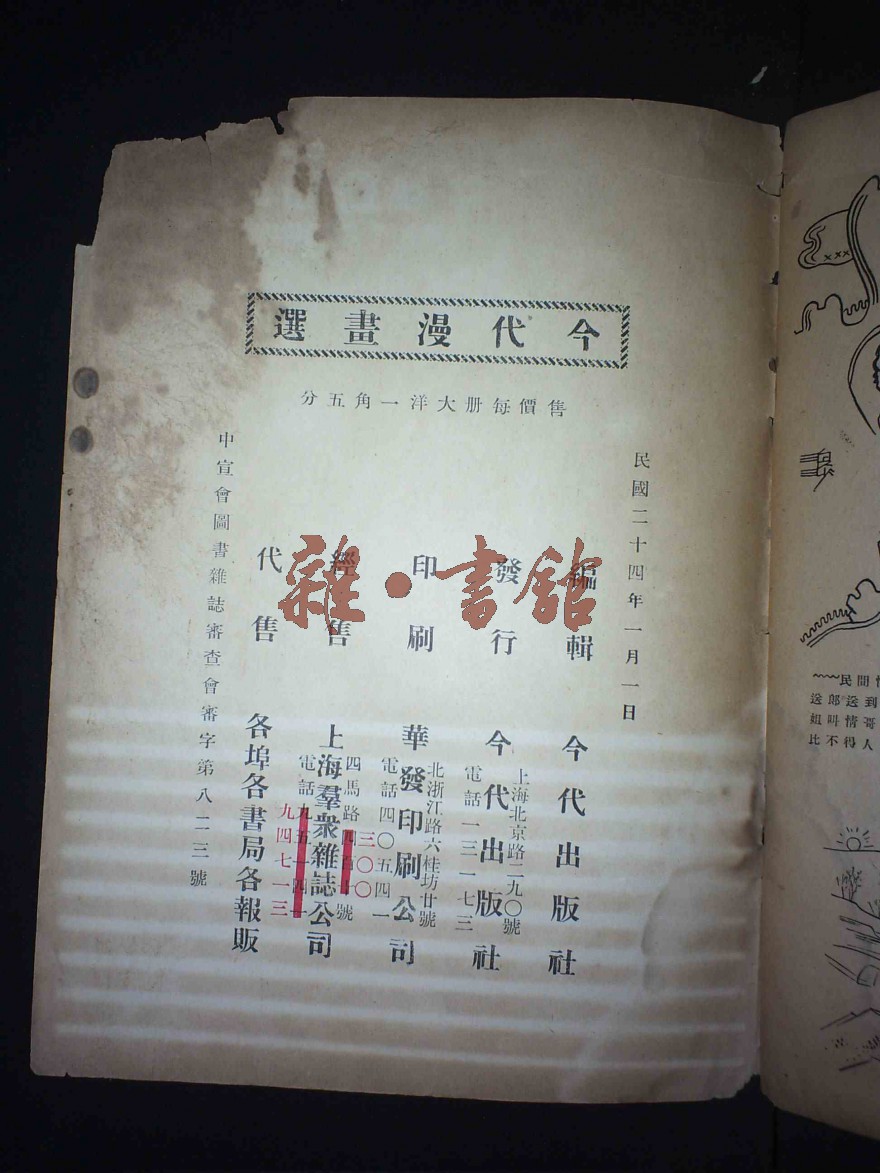 今代漫畫選
售價每册大洋一角五分
民國二十四年一月一日
編輯 今代出版社
發行 今代出版社
上海北京路二九〇號
電話一三一七三
印刷 華發印刷公司
北浙江路六桂坊廿號
電話四〇五四一
經售 上海羣衆雜誌公司
四馬路
三〇〇
號
電話九五一四一
九四七一三
代售 各埠各書局各報販
中宣會圖書雜誌審查會審字第八二三號
雜·書館
民間情
送郎送到
姐叫情哥
比不得人